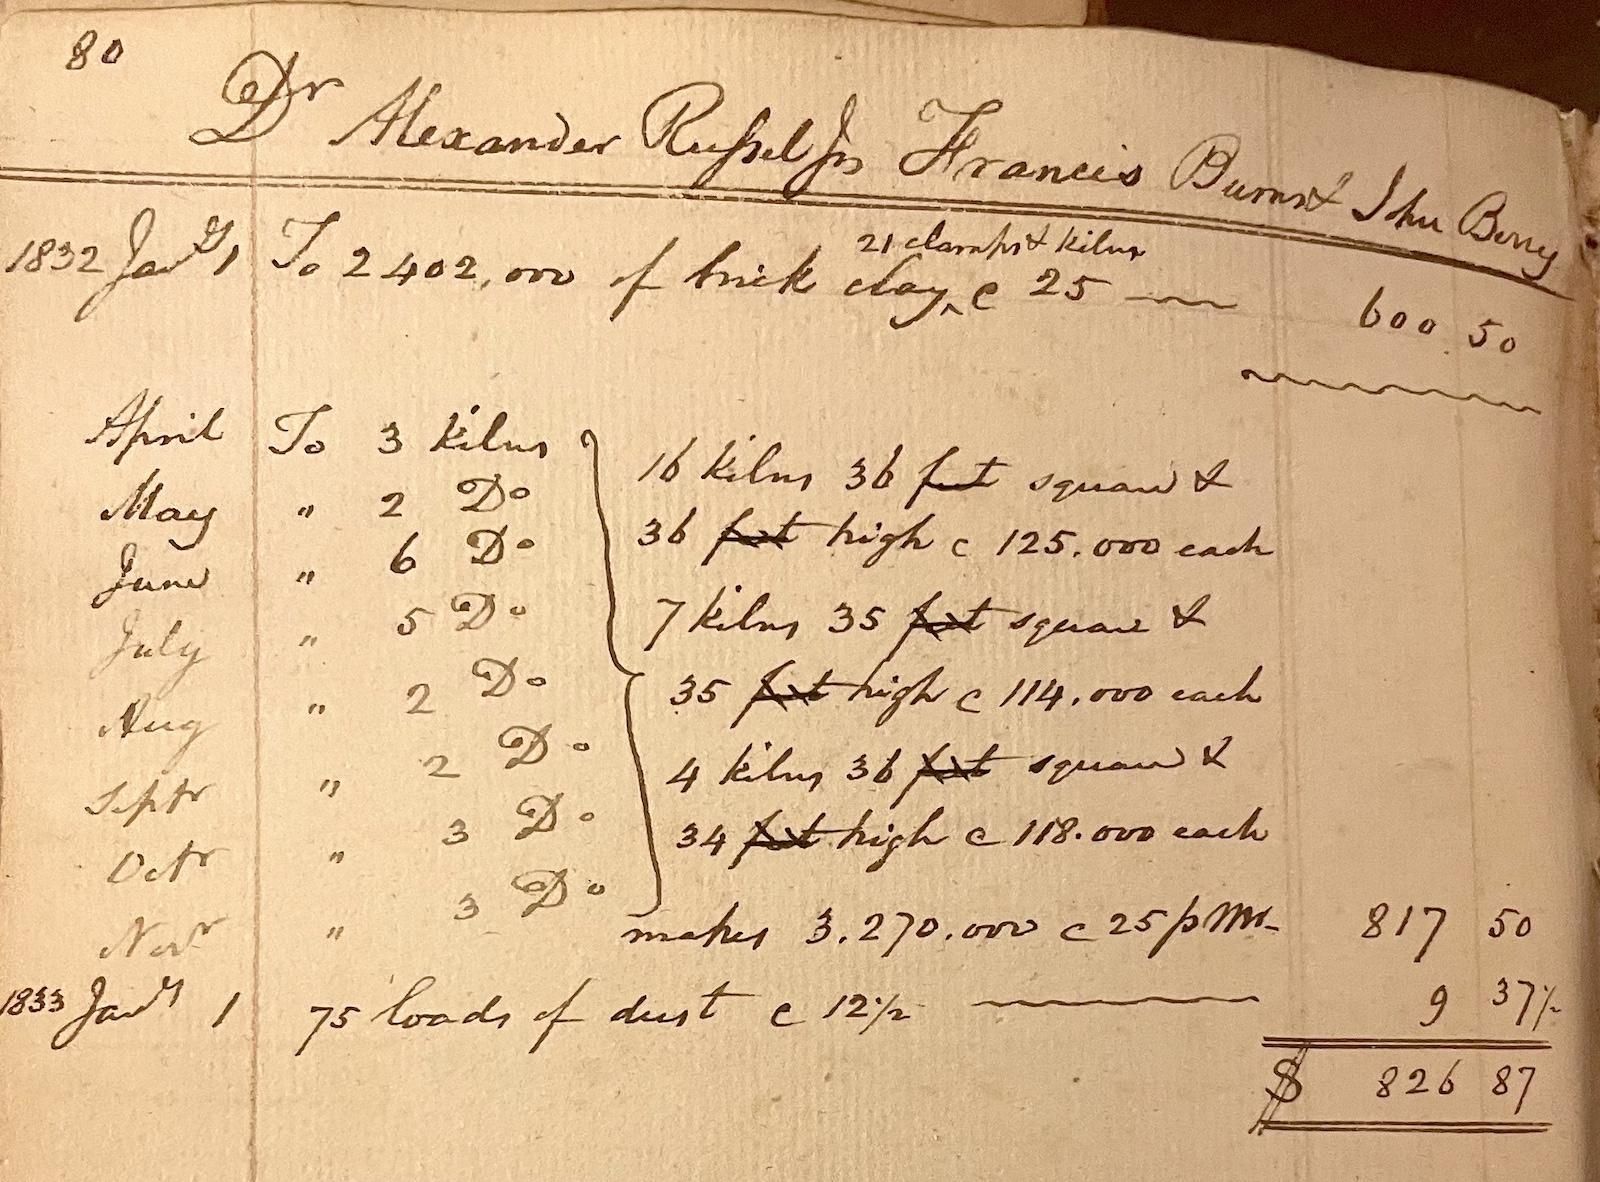 80
Dr Alexander Russel Jr Francis Burns & John Berry
21 clamps & kilns
1832 Jany 1 To 2402,000 of brick clay ^ @ 25 600 50
April To 3 kilns
16 kilns 36 feet square &
May " 2 Do
36 feet high @ 125.000 each
June " 6 Do
7 kilns 35 feet square &
July " 5 Do
35 feet high @ 114.000 each
Aug " 2 Do
4 kilns 36 feet square &
Septr " 2 Do
34 feet high @ 118.000 each
Octr " 3 Do
Novr " 3 Do
makes 3.270.000 @ 25 p M 817 50
1833 Jany 1 75 loads of dust @ 12 1/2 9 37 1/2
$ 826 87